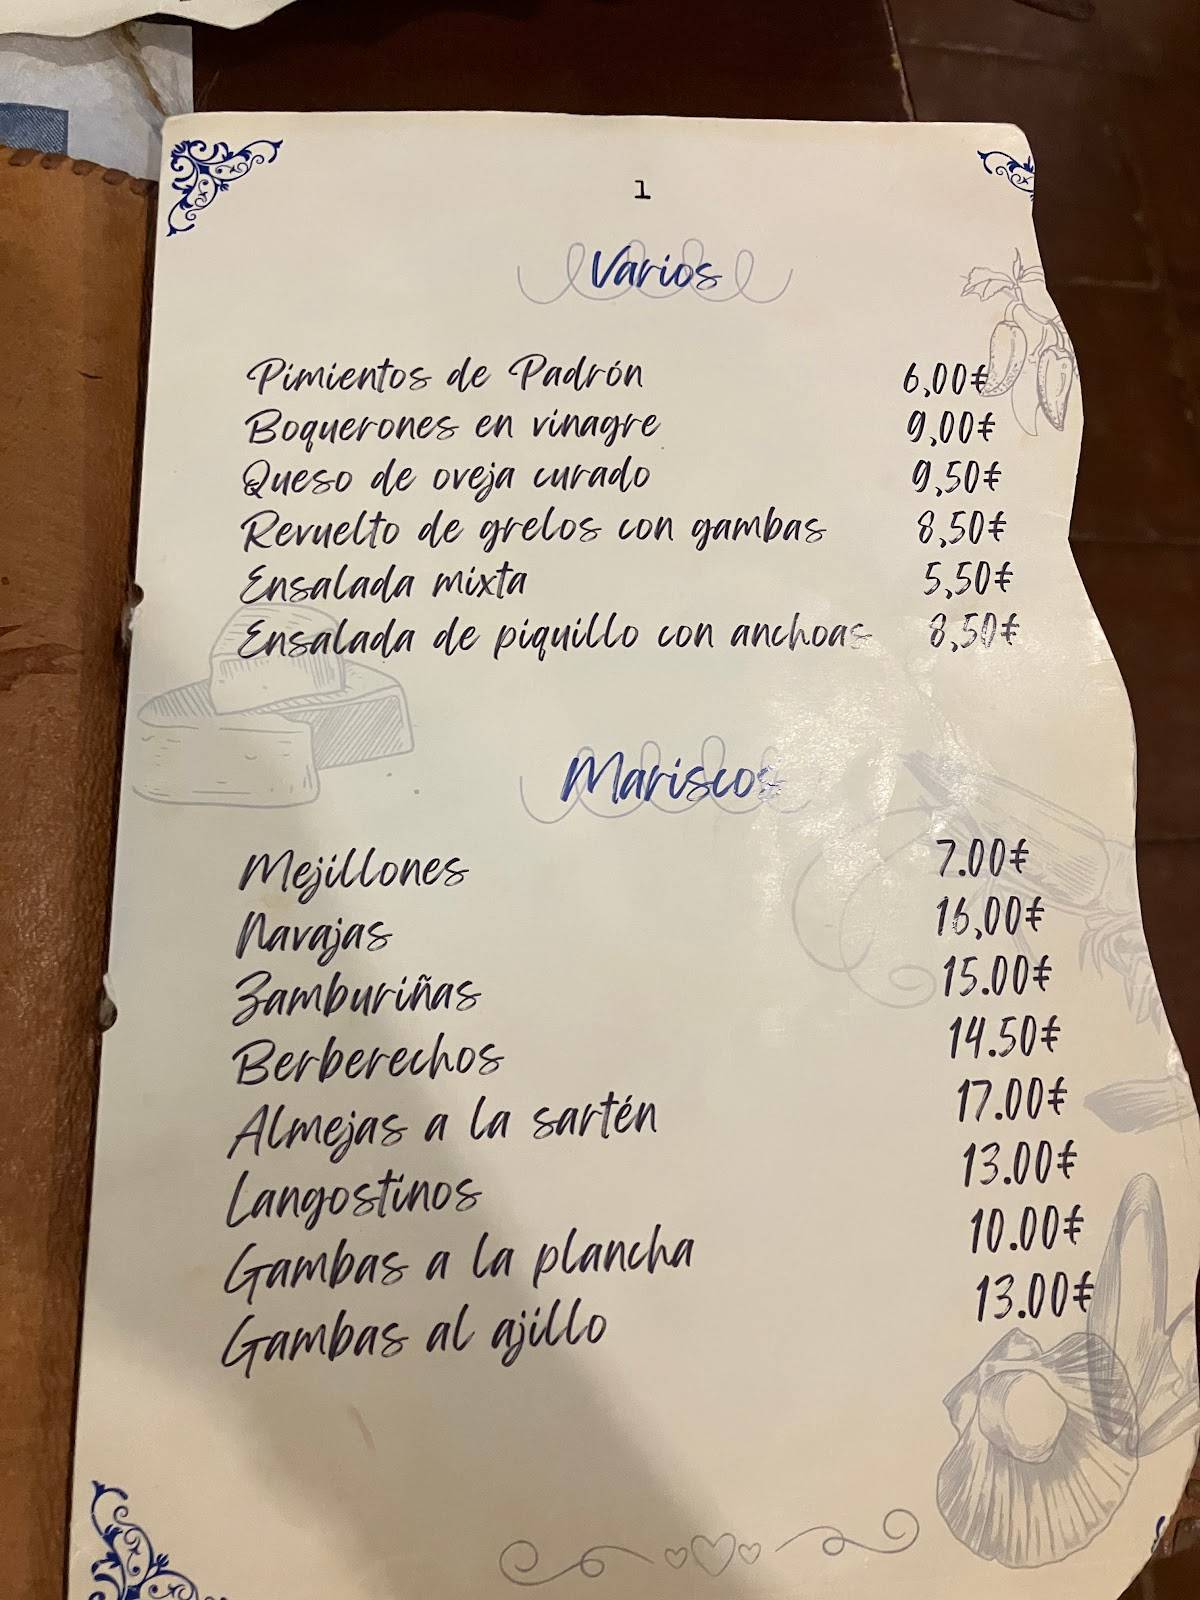 1
Varios
Pimientos de Padrón 6,00€
Boquerones en vinagre 9,00€
Queso de oveja curado 9,50€
Revuelto de grelos con gambas 8,50€
Ensalada mixta 5,50€
Ensalada de piquillo con anchoas 8,50€
Mariscos
Mejillones 7.00€
Navajas 16,00€
Zamburiñas 15.00€
Berberechos 14.50€
Almejas a la sartén 17.00€
Langostinos 13.00€
Gambas a la plancha 10.00€
Gambas al ajillo 13.00€